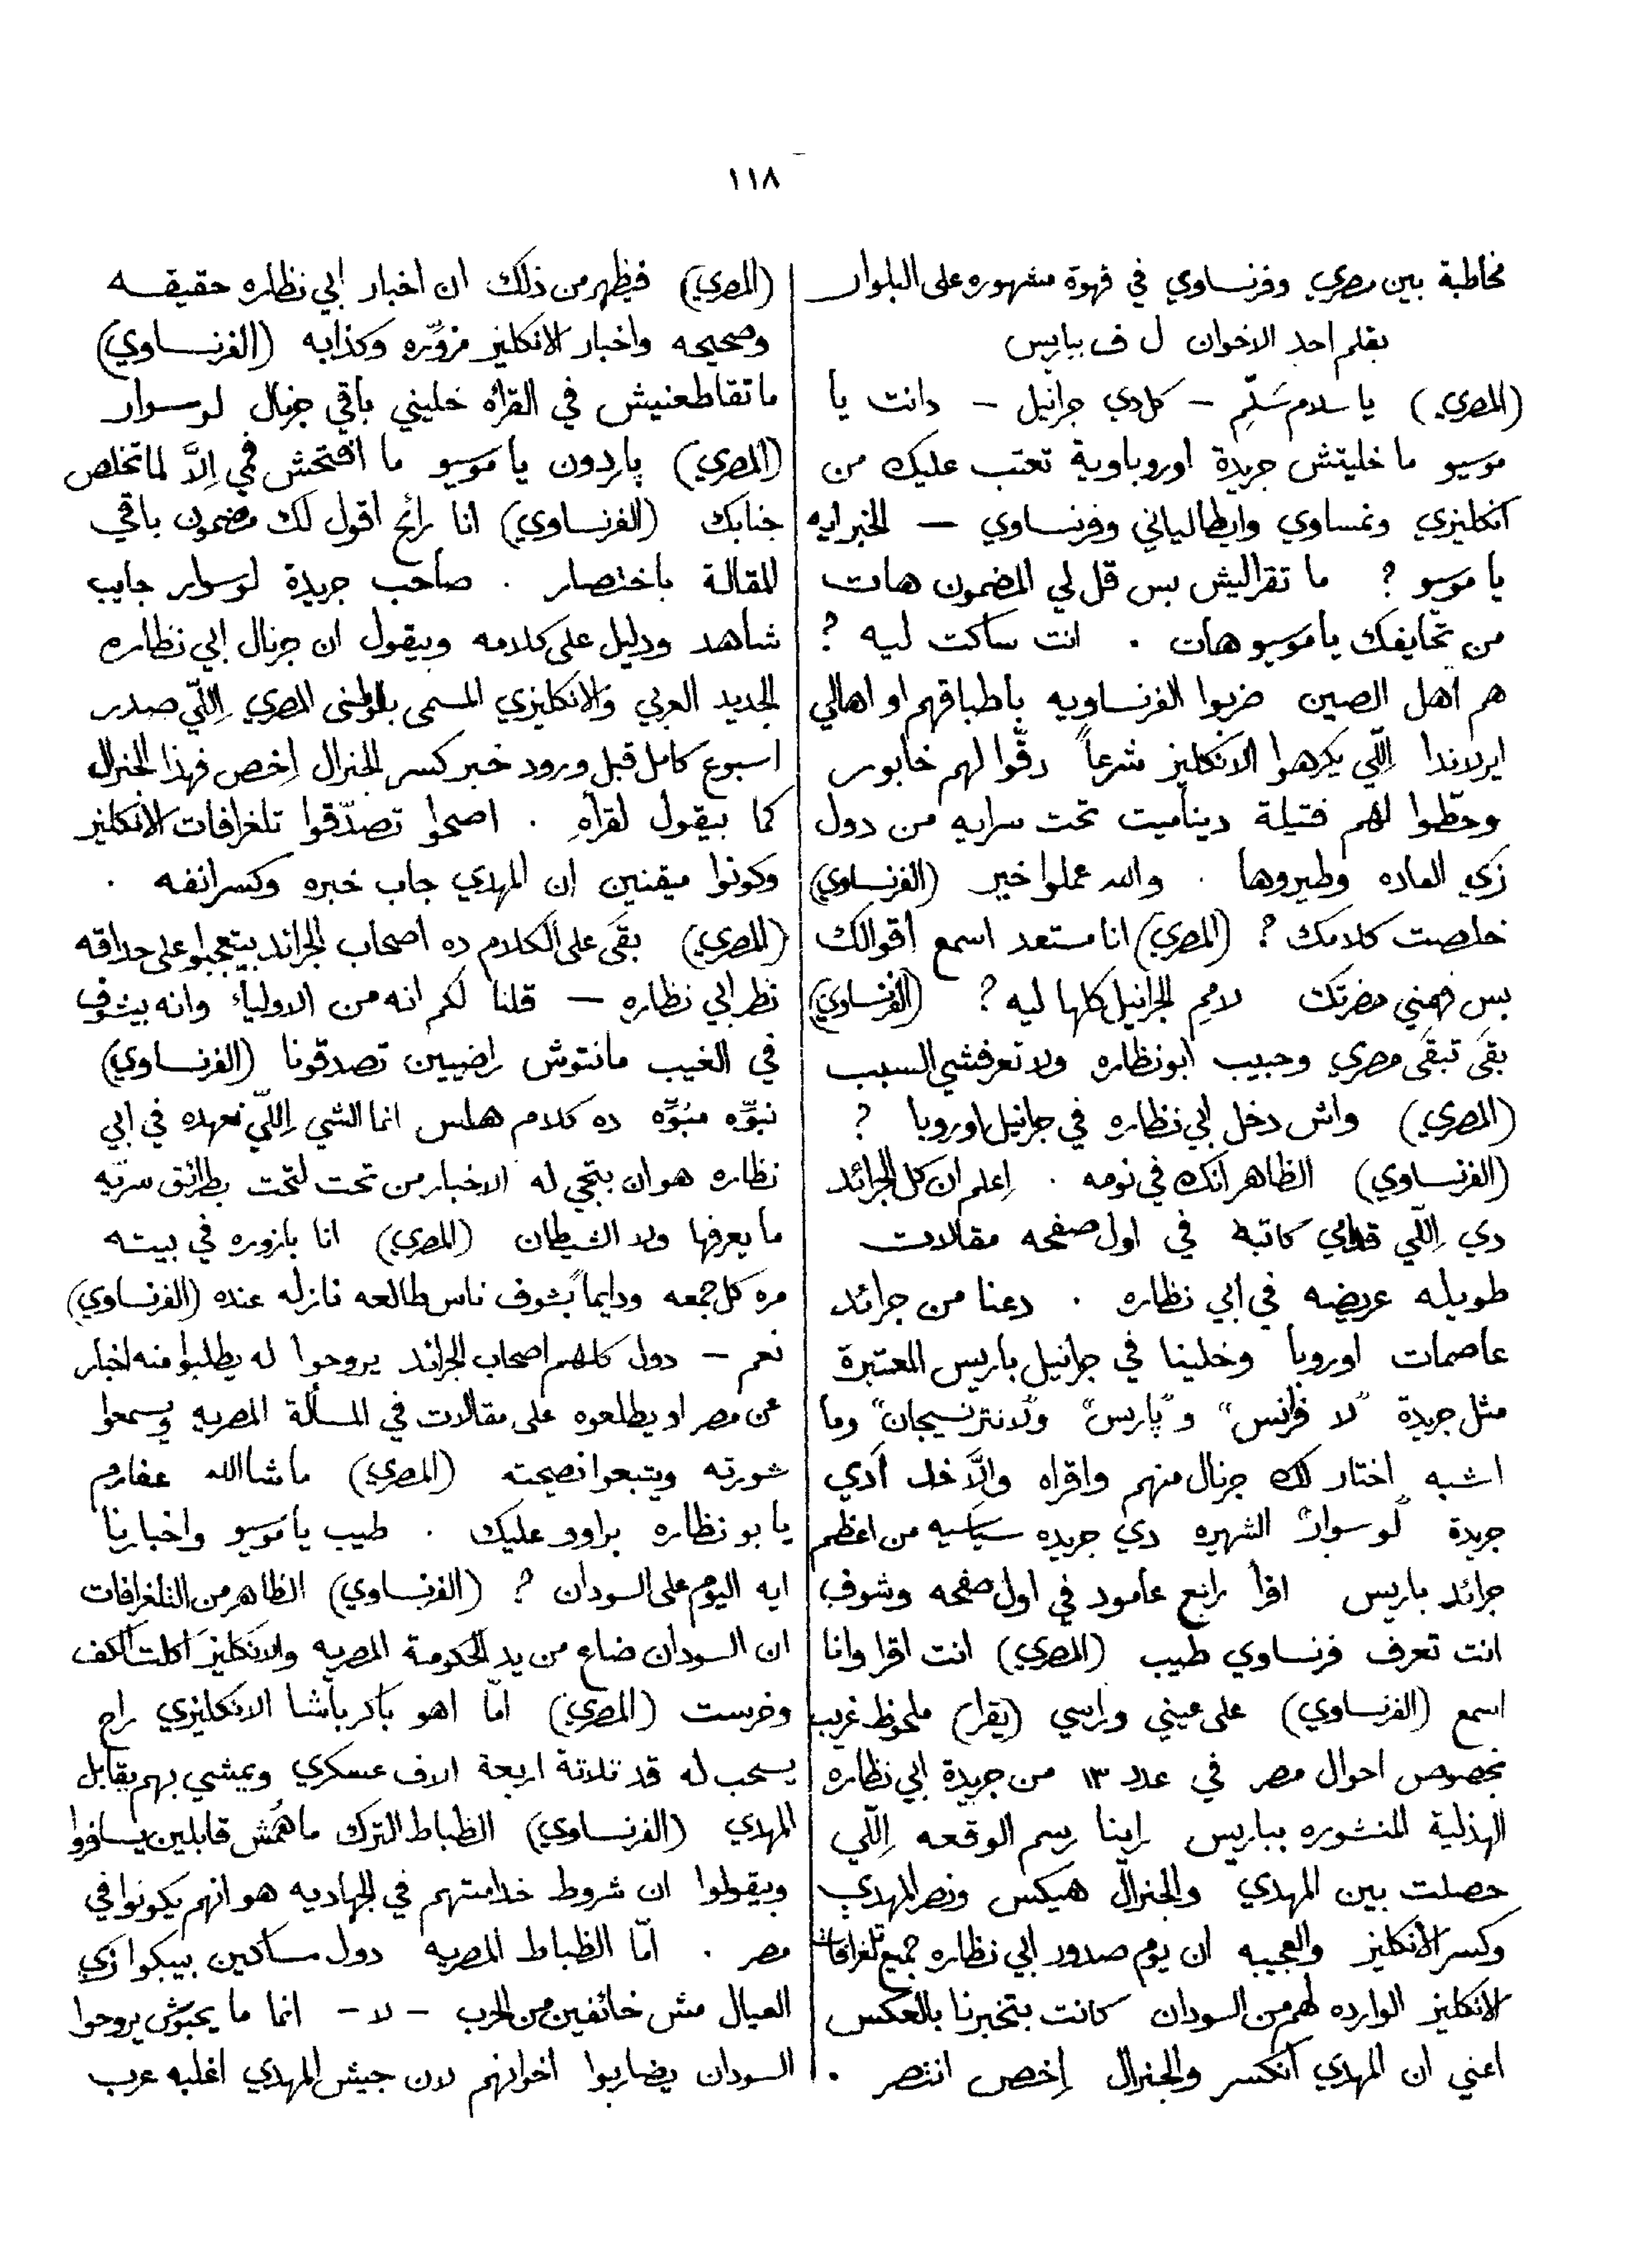 ١١٨
مخاطبة بين مصري وفرنساوي في قهوة مشهوره على البلوار
بقلم احد الاخوان ل ف بباريس
(المصري) يا سلام سَلِّم – كل دي جرانيل – دانت يا
موسيو ما خليتش جريدة اوروباوية تعتب عليك من
انكليزي ونمساوي وايطالياني وفرنساوي – الخبر ايه
يا موسيو ? ما تقراليش بس قل لي المضمون هات
من تحايفك يا موسيو هات . انت ساكت ليه ?
هم اهل الصين ضربوا الفرنساويه باطباقهم او اهالي
ايرلاندا اِللّي يكرهوا الانكليز شرعاً دقّوا لهم خابور
وحطّوا لهم فتيلة ديناميت تحت سرايه من دول
زي العاده وطيروها . والله عملوا خير (الفرنساوي)
خلصت كلامك ? (المصري) انا مستعد اسمع اقوالك
بس فهمني حضرتك لامم الجرانيل كلها ليه ? (الفرنساوي)
بقَى تبقَى مصري وحبيب ابو نظاره ولا تعرفشي السبب
(المصري) واش دخل ابي نظاره في جرانيل اوروبا ?
(الفرنساوي) الظاهر انك في نومه . اِعلم ان كل الجرائد
دي اِللّي قدامي كاتبة في اول صفحه مقالات
طويله عريضه في ابي نظاره . دعنا من جرائد
عاصمات اوروبا وخلينا في جرانيل باريس المعتبرة
مثل جريدة "لا فرانس" و"پاريس" و"لانترنسيجان" وما
اشبه اختار لك جرنال منهم واقراه والَّا خد اَدي
جريدة "لوسوار" الشهيره دي جريده سياسيه من اعظم
جرائد باريس اقرأ رابع عامود في اول صفحه وشوف
انت تعرف فرنساوي طيب (المصري) انت اقرا وانا
اسمع (الفرنساوي) على عيني وراسي (يقرا) ملحوظ غريب
بخصوص احوال مصر في عدد ١٣ من جريدة ابي نظاره
الهذلية المنشوره بباريس راينا رسم الوقعه اِللّي
حصلت بين المهدي والجنرال هيكس ونصر المهدي
وكسر الانكليز والعجيبه ان يوم صدور ابي نظاره جميع تلغرافات
الانكليز الوارده لهم من السودان كانت بتخبرنا بالعكس
اعني ان المهدي انكسر والجنرال اِخص انتصر .
(المصري) فيظهر من ذلك ان اخبار ابي نظاره حقيقه
وصحيحه واخبار الانكليز مزوّره وكذابه (الفرنساوي)
ما تقاطعنيش في القرأه خليني باقي جرنال لوسوار
(المصري) پاردون يا موسيو ما افتحش فمي اِلَّا لما تخلص
جنابك (الفرنساوي) انا رائح اقول لك مضمون باقي
المقالة باختصار . صاحب جريدة لوسوار جايب
شاهد ودليل على كلامه وبيقول ان جرنال ابي نظاره
الجديد العربي والانكليزي المسمى بالوطني المصري اِللّي صدر
اسبوع كامل قبل ورود خبر كسر الجنرال اِخص فهذا الجنرال
كما بيقول لقراه . اصحوا تصدّقوا تلغرافات الانكليز
وكونوا ميقنين ان المهدي جاب خبره وكسر انفه .
(المصري) بقَى على الكلام ده اصحاب الجرائد بيتعجبوا على حداقه
نظر ابي نظاره – قلنا لكم انه من الاولياء وانه بيشوف
في الغيب مانتوش راضيين تصدقونا (الفرنساوي)
نبوّه منبوّه ده كلام هلس انما الشي اِللّي نعهده في ابي
نظاره هو ان بتجي له الاخبار من تحت لتحت بطرائق سرّيه
ما يعرفها ولا الشيطان (المصري) انا بازوره في بيته
مره كل جمعه ودايماً بشوف ناس طالعه نازله عنده (الفرنساوي)
نعم – دول كلهم اصحاب الجرائد يروحوا له يطلبوا منه اخبار
عن مصر او يطلعوه على مقالات في المسألة المصريه ويسمعوا
شورته ويتبعوا نصيحته (المصري) ما شاالله عفارم
يا بو نظاره براوو عليك . طيب يا موسيو واخبارنا
ايه اليوم على السودان ? (الفرنساوي) الظاهر من التلغرافات
ان السودان ضاع من يد الحكومة المصريه والانكليز اكلت اكف
وخرست (المصري) امّا اهو باكر باشا الانكليزي راح
يسحب له قد تلاتة اربعة الاف عسكري ويمشي بهم يقابل
المهدي (الفرنساوي) الظباط الترك ماهُمْش قابلين يسافروا
ويقولوا ان شروط خدامتهم في الجهاديه هو انهم يكونوا في
مصر . امّا الظباط المصريه دول مساكين بيبكوا زي
العيال مش خائفين من الحرب – لا – انما ما يحبوش يروحوا
السودان يضاربوا اخوانهم لان جيش المهدي اغلبه عرب